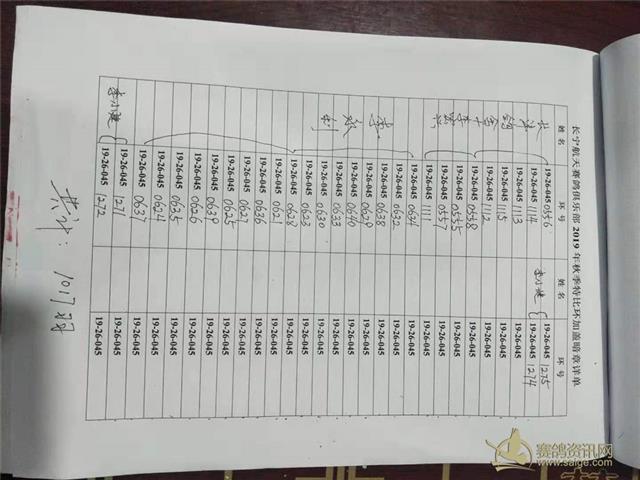 长宁航天赛鸽俱乐部 2019 年秋季特比环加盖暗章详单
姓名 环号 姓名 环号
19-26-045 0556 李小建 19-26-045 1275
19-26-045 1114 19-26-045 1274
19-26-045 1113 19-26-045
19-26-045 1115 19-26-045
19-26-045 1112 19-26-045
19-26-045 0558 19-26-045
19-26-045 0555 19-26-045
19-26-045 0557 19-26-045
19-26-045 1111 19-26-045
19-26-045 0634 19-26-045
19-26-045 0632 19-26-045
19-26-045 0638 19-26-045
19-26-045 0629 19-26-045
19-26-045 0640 19-26-045
19-26-045 0633 19-26-045
19-26-045 0630 19-26-045
19-26-045 0623 19-26-045
19-26-045 0628 19-26-045
19-26-045 0621 19-26-045
19-26-045 0636 19-26-045
19-26-045 0627 19-26-045
19-26-045 0625 19-26-045
19-26-045 0639 19-26-045
19-26-045 0626 19-26-045
19-26-045 0625 19-26-045
19-26-045 0624 19-26-045
19-26-045 0637 19-26-045
李小建 19-26-045 1271 19-26-045
19-26-045 1272 19-26-045
共计: 1017羽
赛鸽资讯网
www.saige.com